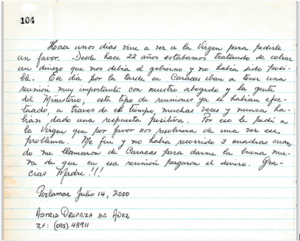 104
Hace unos días vine a ver a la Virgen para pedirle
un favor. Desde hace 22 años estábamos tratando de cobrar
un dinero que nos debía el gobierno y no había sido posi-
ble. Ese día por la tarde en Caracas iban a tener una
reunión muy importante con nuestro abogado y la gente
del Ministerio, este tipo de reuniones ya se habían efec-
tuado a través de tiempo muchas veces y nunca ha-
bían dado una respuesta positiva. Por eso le pedí a
la Virgen que por favor nos resolviera de una vez ese
problema. Me fui y no había recorrido 3 cuadras cuan-
do me llamaron de Caracas para darme la buena nue-
va de que en esa reunión pagaron el dinero. Gra-
cias Madre!!!
Porlamar Julio 14, 2000